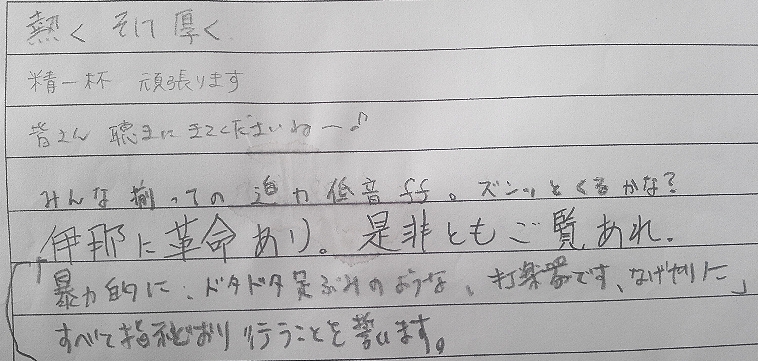 熱く そして 厚く
精一杯 頑張ります
皆さん 聴きにきてくださいねー♪
みんな揃っての迫力低音ff。ズンッとくるかな?
伊那に革命あり。是非ともご覧あれ.
「暴力的に、ドタドタ足ぶみのような、打楽器です、なげやりに」
すべて指示どおり行うことを誓います。